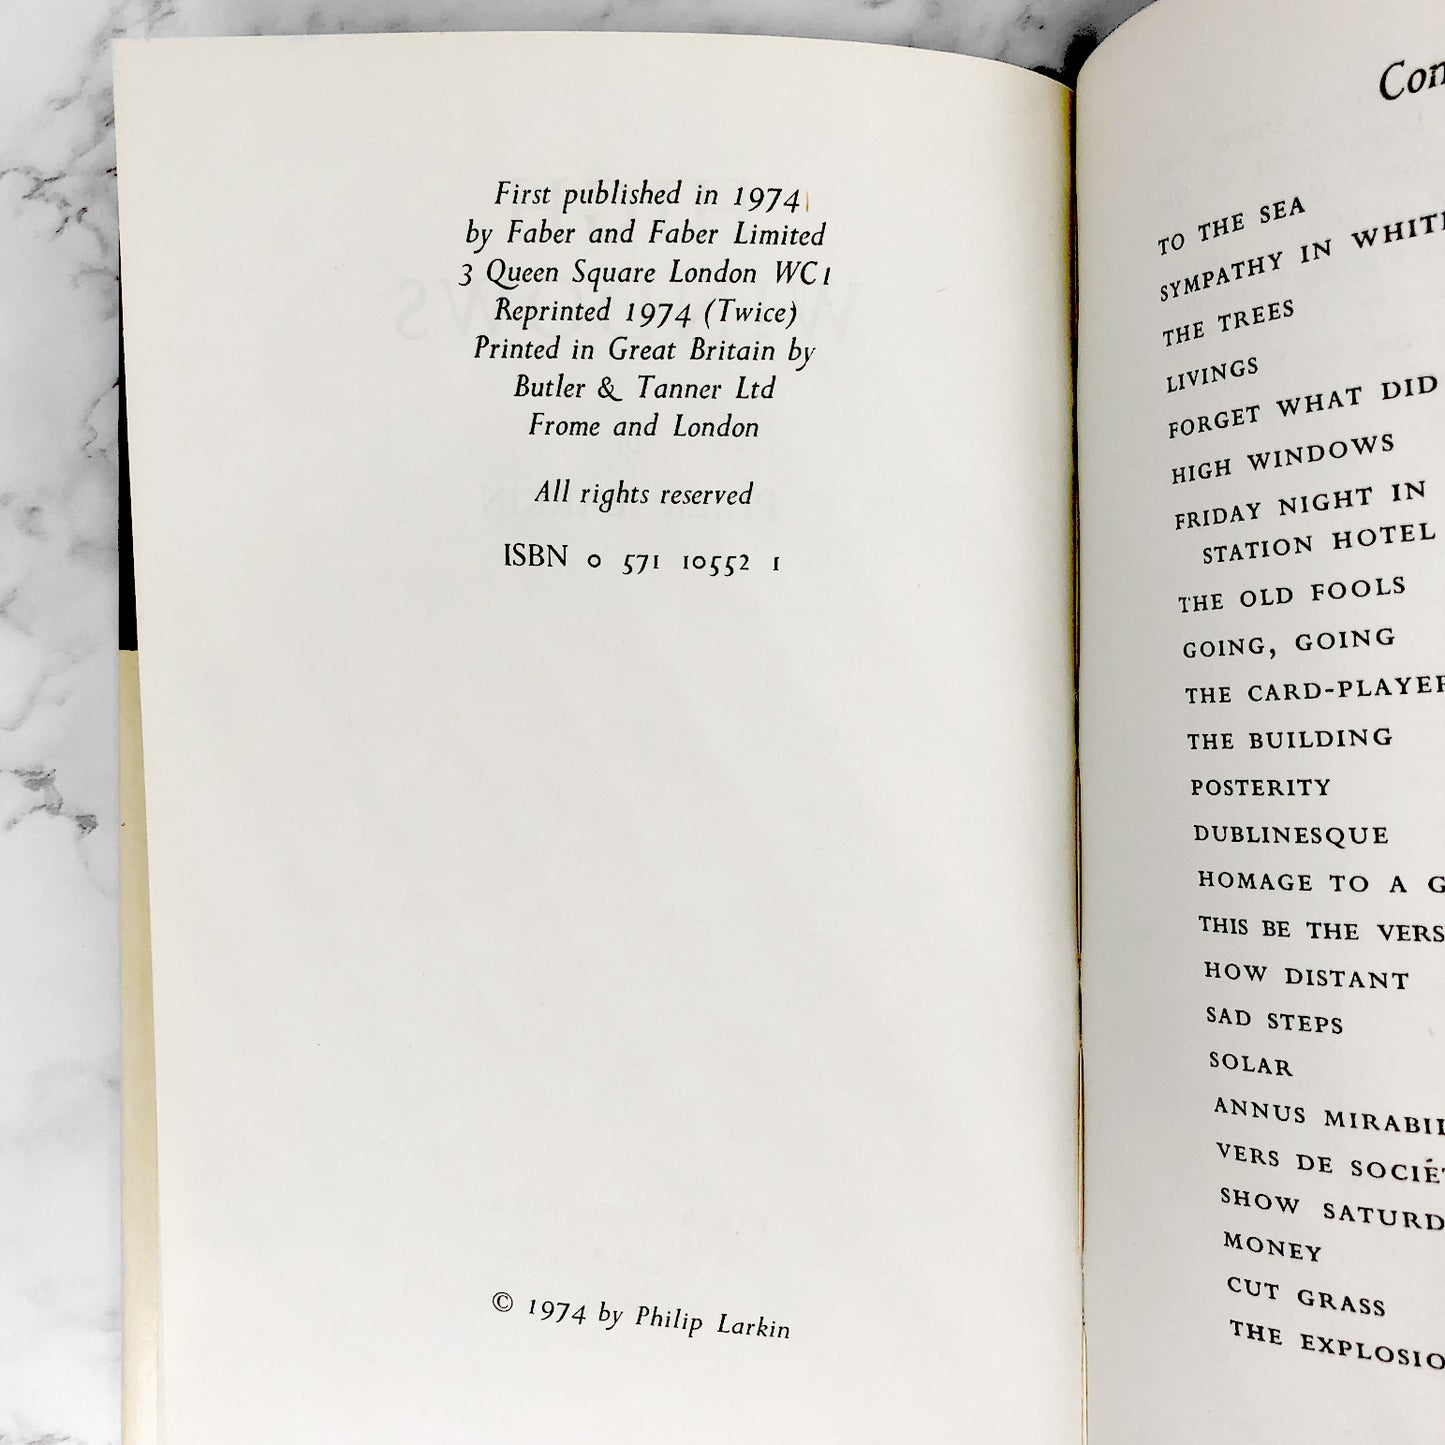 First published in 1974
by Faber and Faber Limited
3 Queen Square London WC1
Reprinted 1974 (Twice)
Printed in Great Britain by
Butler & Tanner Ltd
Frome and London
All rights reserved
ISBN 0 571 10552 1
© 1974 by Philip Larkin
Con
TO THE SEA
SYMPATHY IN WHIT
THE TREES
LIVINGS
FORGET WHAT DID
HIGH WINDOWS
FRIDAY NIGHT IN
STATION HOTEL
THE OLD FOOLS
GOING, GOING
THE CARD-PLAYER
THE BUILDING
POSTERITY
DUBLINESQUE
HOMAGE TO A G
THIS BE THE VERS
HOW DISTANT
SAD STEPS
SOLAR
ANNUS MIRABIL
VERS DE SOCIÉT
SHOW SATURD
MONEY
CUT GRASS
THE EXPLOSIO